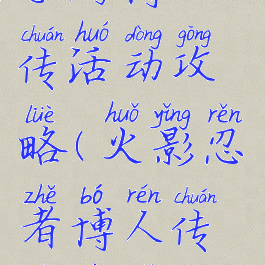 chuán huó dòng gōng
传活动攻
lüè huǒ yǐng rěn
略(火影忍
zhě bó rén chuán
者博人传